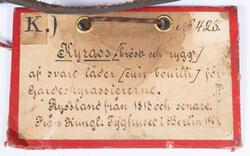 K.) No 423.
Kyrass (bröst och rygg)
af svart läder (cuir bouilli) för
Gardeskyrassiererne.
Ryssland från 1813 och senare.
Från Kungl. Tyghuset i Berlin